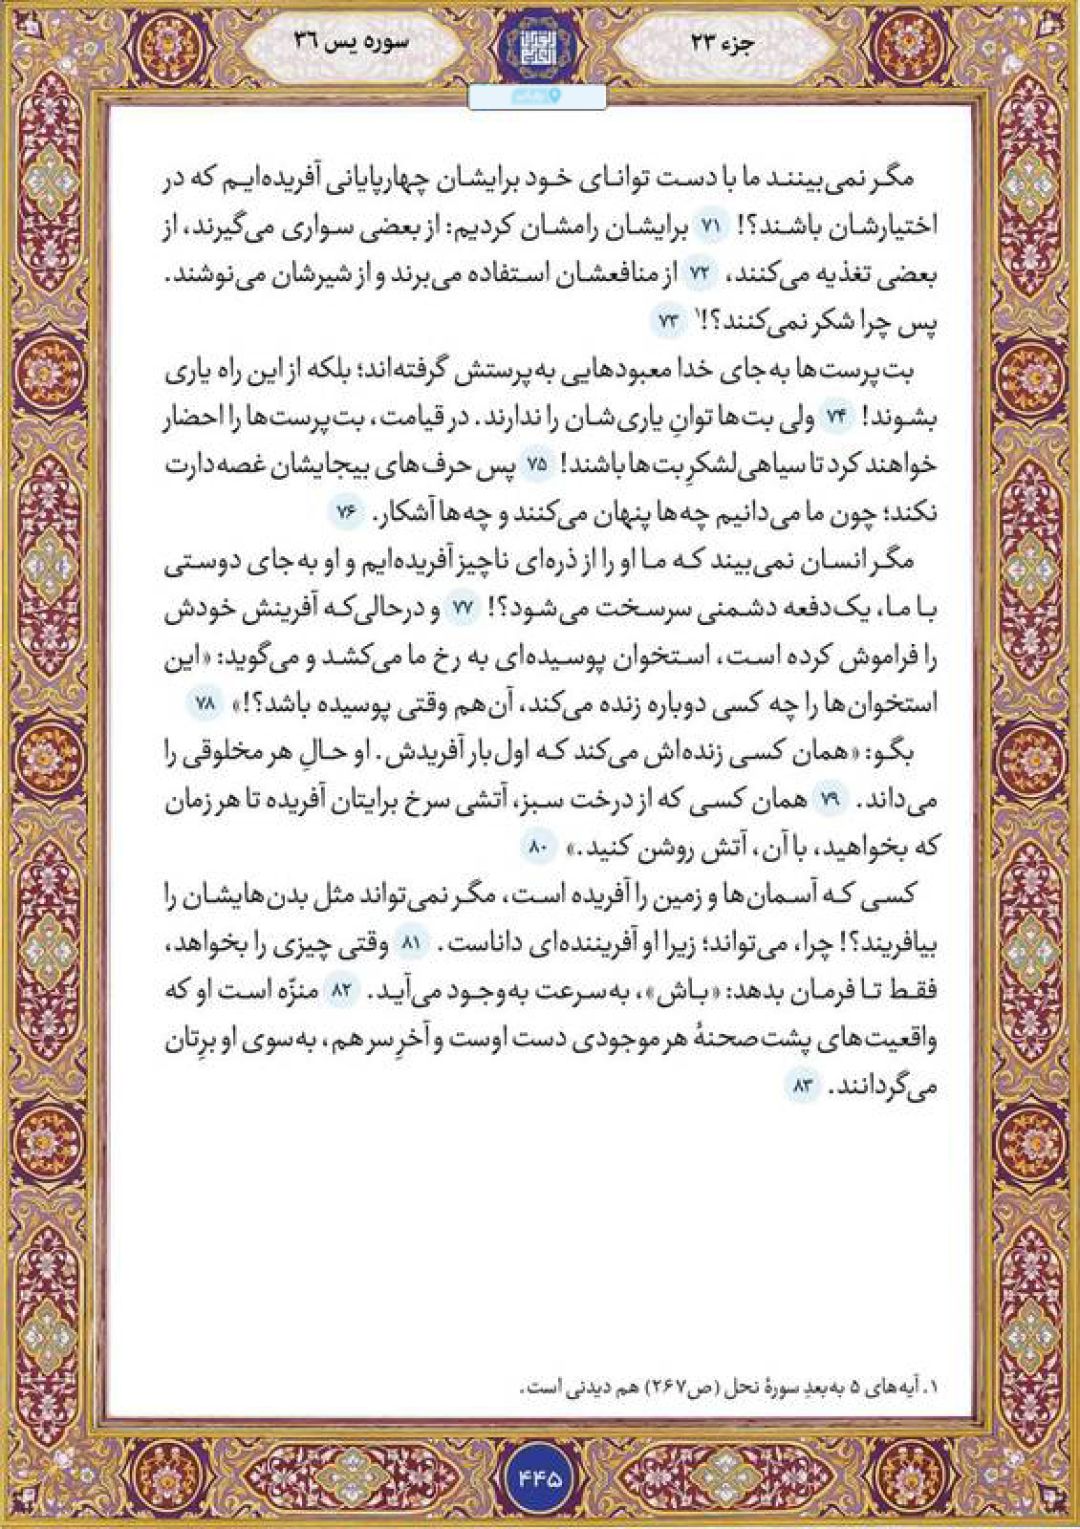 جزء ۲۳
سوره یس ۳۶
مگر نمی‌بینند ما با دست توانای خود برایشان چهارپایانی آفریده‌ایم که در
اختیارشان باشند؟! ۷۱ برایشان رامشان کردیم: از بعضی سواری می‌گیرند، از
بعضی تغذیه می‌کنند، ۷۲ از منافعشان استفاده می‌برند و از شیرشان می‌نوشند.
پس چرا شکر نمی‌کنند؟!۱ ۷۳
بت‌پرست‌ها به‌جای خدا معبودهایی به‌پرستش گرفته‌اند؛ بلکه از این راه یاری
بشوند! ۷۴ ولی بت‌ها توانِ یاری‌شان را ندارند. در قیامت، بت‌پرست‌ها را احضار
خواهند کرد تا سیاهی‌لشکرِ بت‌ها باشند! ۷۵ پس حرف‌های بیجایشان غصه‌دارت
نکند؛ چون ما می‌دانیم چه‌ها پنهان می‌کنند و چه‌ها آشکار. ۷۶
مگر انسان نمی‌بیند که ما او را از ذره‌ای ناچیز آفریده‌ایم و او به‌جای دوستی
با ما، یک‌دفعه دشمنی سرسخت می‌شود؟! ۷۷ و درحالی‌که آفرینش خودش
را فراموش کرده است، استخوان پوسیده‌ای به رخ ما می‌کشد و می‌گوید: «این
استخوان‌ها را چه کسی دوباره زنده می‌کند، آن‌هم وقتی پوسیده باشد؟!» ۷۸
بگو: «همان کسی زنده‌اش می‌کند که اول‌بار آفریدش. او حالِ هر مخلوقی را
می‌داند. ۷۹ همان کسی که از درخت سبز، آتشی سرخ برایتان آفریده تا هر زمان
که بخواهید، با آن، آتش روشن کنید.» ۸۰
کسی که آسمان‌ها و زمین را آفریده است، مگر نمی‌تواند مثل بدن‌هایشان را
بیافریند؟! چرا، می‌تواند؛ زیرا او آفریننده‌ای داناست. ۸۱ وقتی چیزی را بخواهد،
فقط تا فرمان بدهد: «باش»، به‌سرعت به‌وجود می‌آید. ۸۲ منزّه است او که
واقعیت‌های پشت‌صحنهٔ هر موجودی دست اوست و آخرِسر هم، به‌سوی او برِتان
می‌گردانند. ۸۳
۱. آیه‌های ۵ به‌بعدِ سورهٔ نحل (ص۲۶۷) هم دیدنی است.
۴۴۵